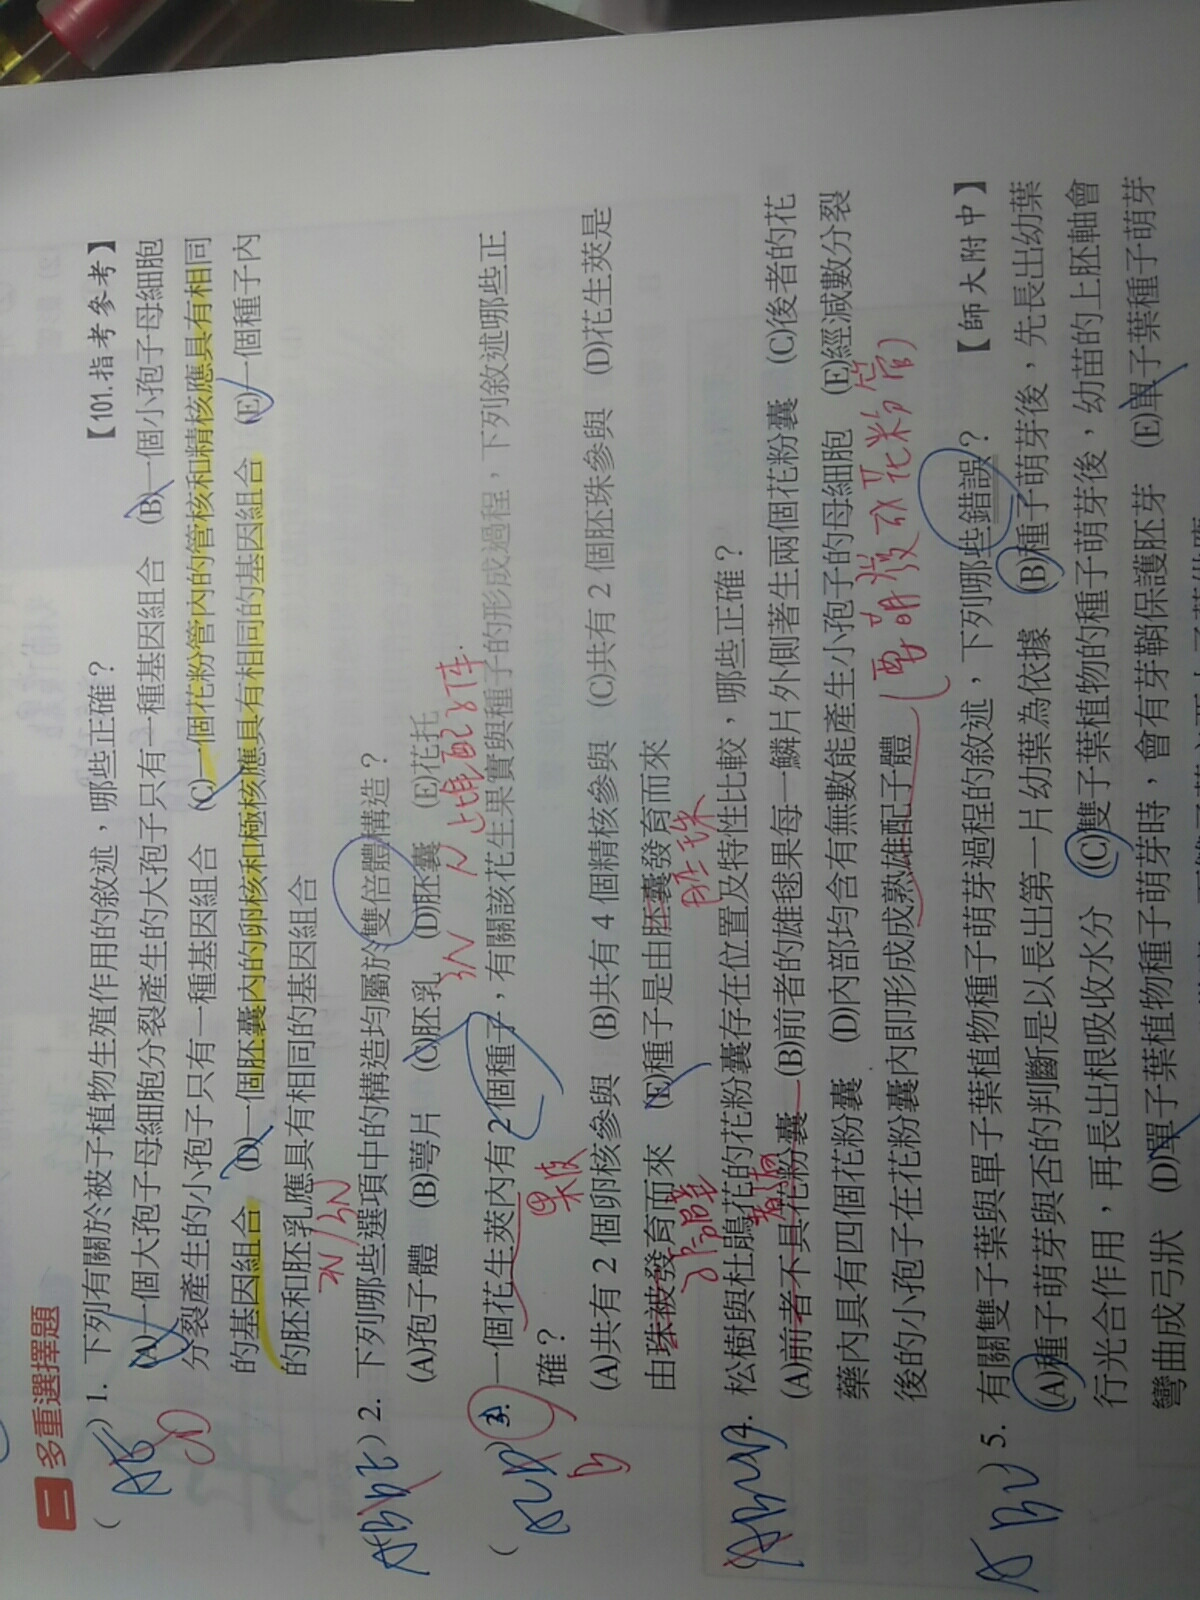 二 多重選擇題
( ) 1. 下列有關於被子植物生殖作用的敘述，哪些正確？ 【101.指考參考】
(A)一個大孢子母細胞分裂產生的大孢子只有一種基因組合 (B)一個小孢子母細胞
分裂產生的小孢子只有一種基因組合 (C)一個花粉管內的管核和精核應具有相同
的基因組合 (D)一個胚囊內的卵核和極核應具有相同的基因組合 (E)一個種子內
的胚和胚乳應具有相同的基因組合
CD
2N/3N
) 2. 下列哪些選項中的構造均屬於雙倍體構造？
(A)孢子體 (B)萼片 (C)胚乳 (D)胚囊 (E)花托
3N N
( ) 3. 一個花生莢內有2個種子，有關該花生果實與種子的形成過程，下列敘述哪些正
確？
果皮
(A)共有2個卵核參與 (B)共有4個精核參與 (C)共有2個胚珠參與 (D)花生莢是
由珠被發育而來 (E)種子是由胚囊發育而來
胚珠
4. 松樹與杜鵑花的花粉囊存在位置及特性比較，哪些正確？
(A)前者不具花粉囊 (B)前者的雄毬果每一鱗片外側著生兩個花粉囊 (C)後者的花
藥內具有四個花粉囊 (D)內部均含有無數能產生小孢子的母細胞 (E)經減數分裂
後的小孢子在花粉囊內即形成成熟雄配子體
(要萌發成花粉管)
) 5. 有關雙子葉與單子葉植物種子萌芽過程的敘述，下列哪些錯誤？ 【師大附中】
(A)種子萌芽與否的判斷是以長出第一片幼葉為依據 (B)種子萌芽後，先長出幼葉
行光合作用，再長出根吸收水分 (C)雙子葉植物的種子萌芽後，幼苗的上胚軸會
彎曲成弓狀 (D)單子葉植物種子萌芽時，會有芽鞘保護胚芽 (E)單子葉種子萌芽